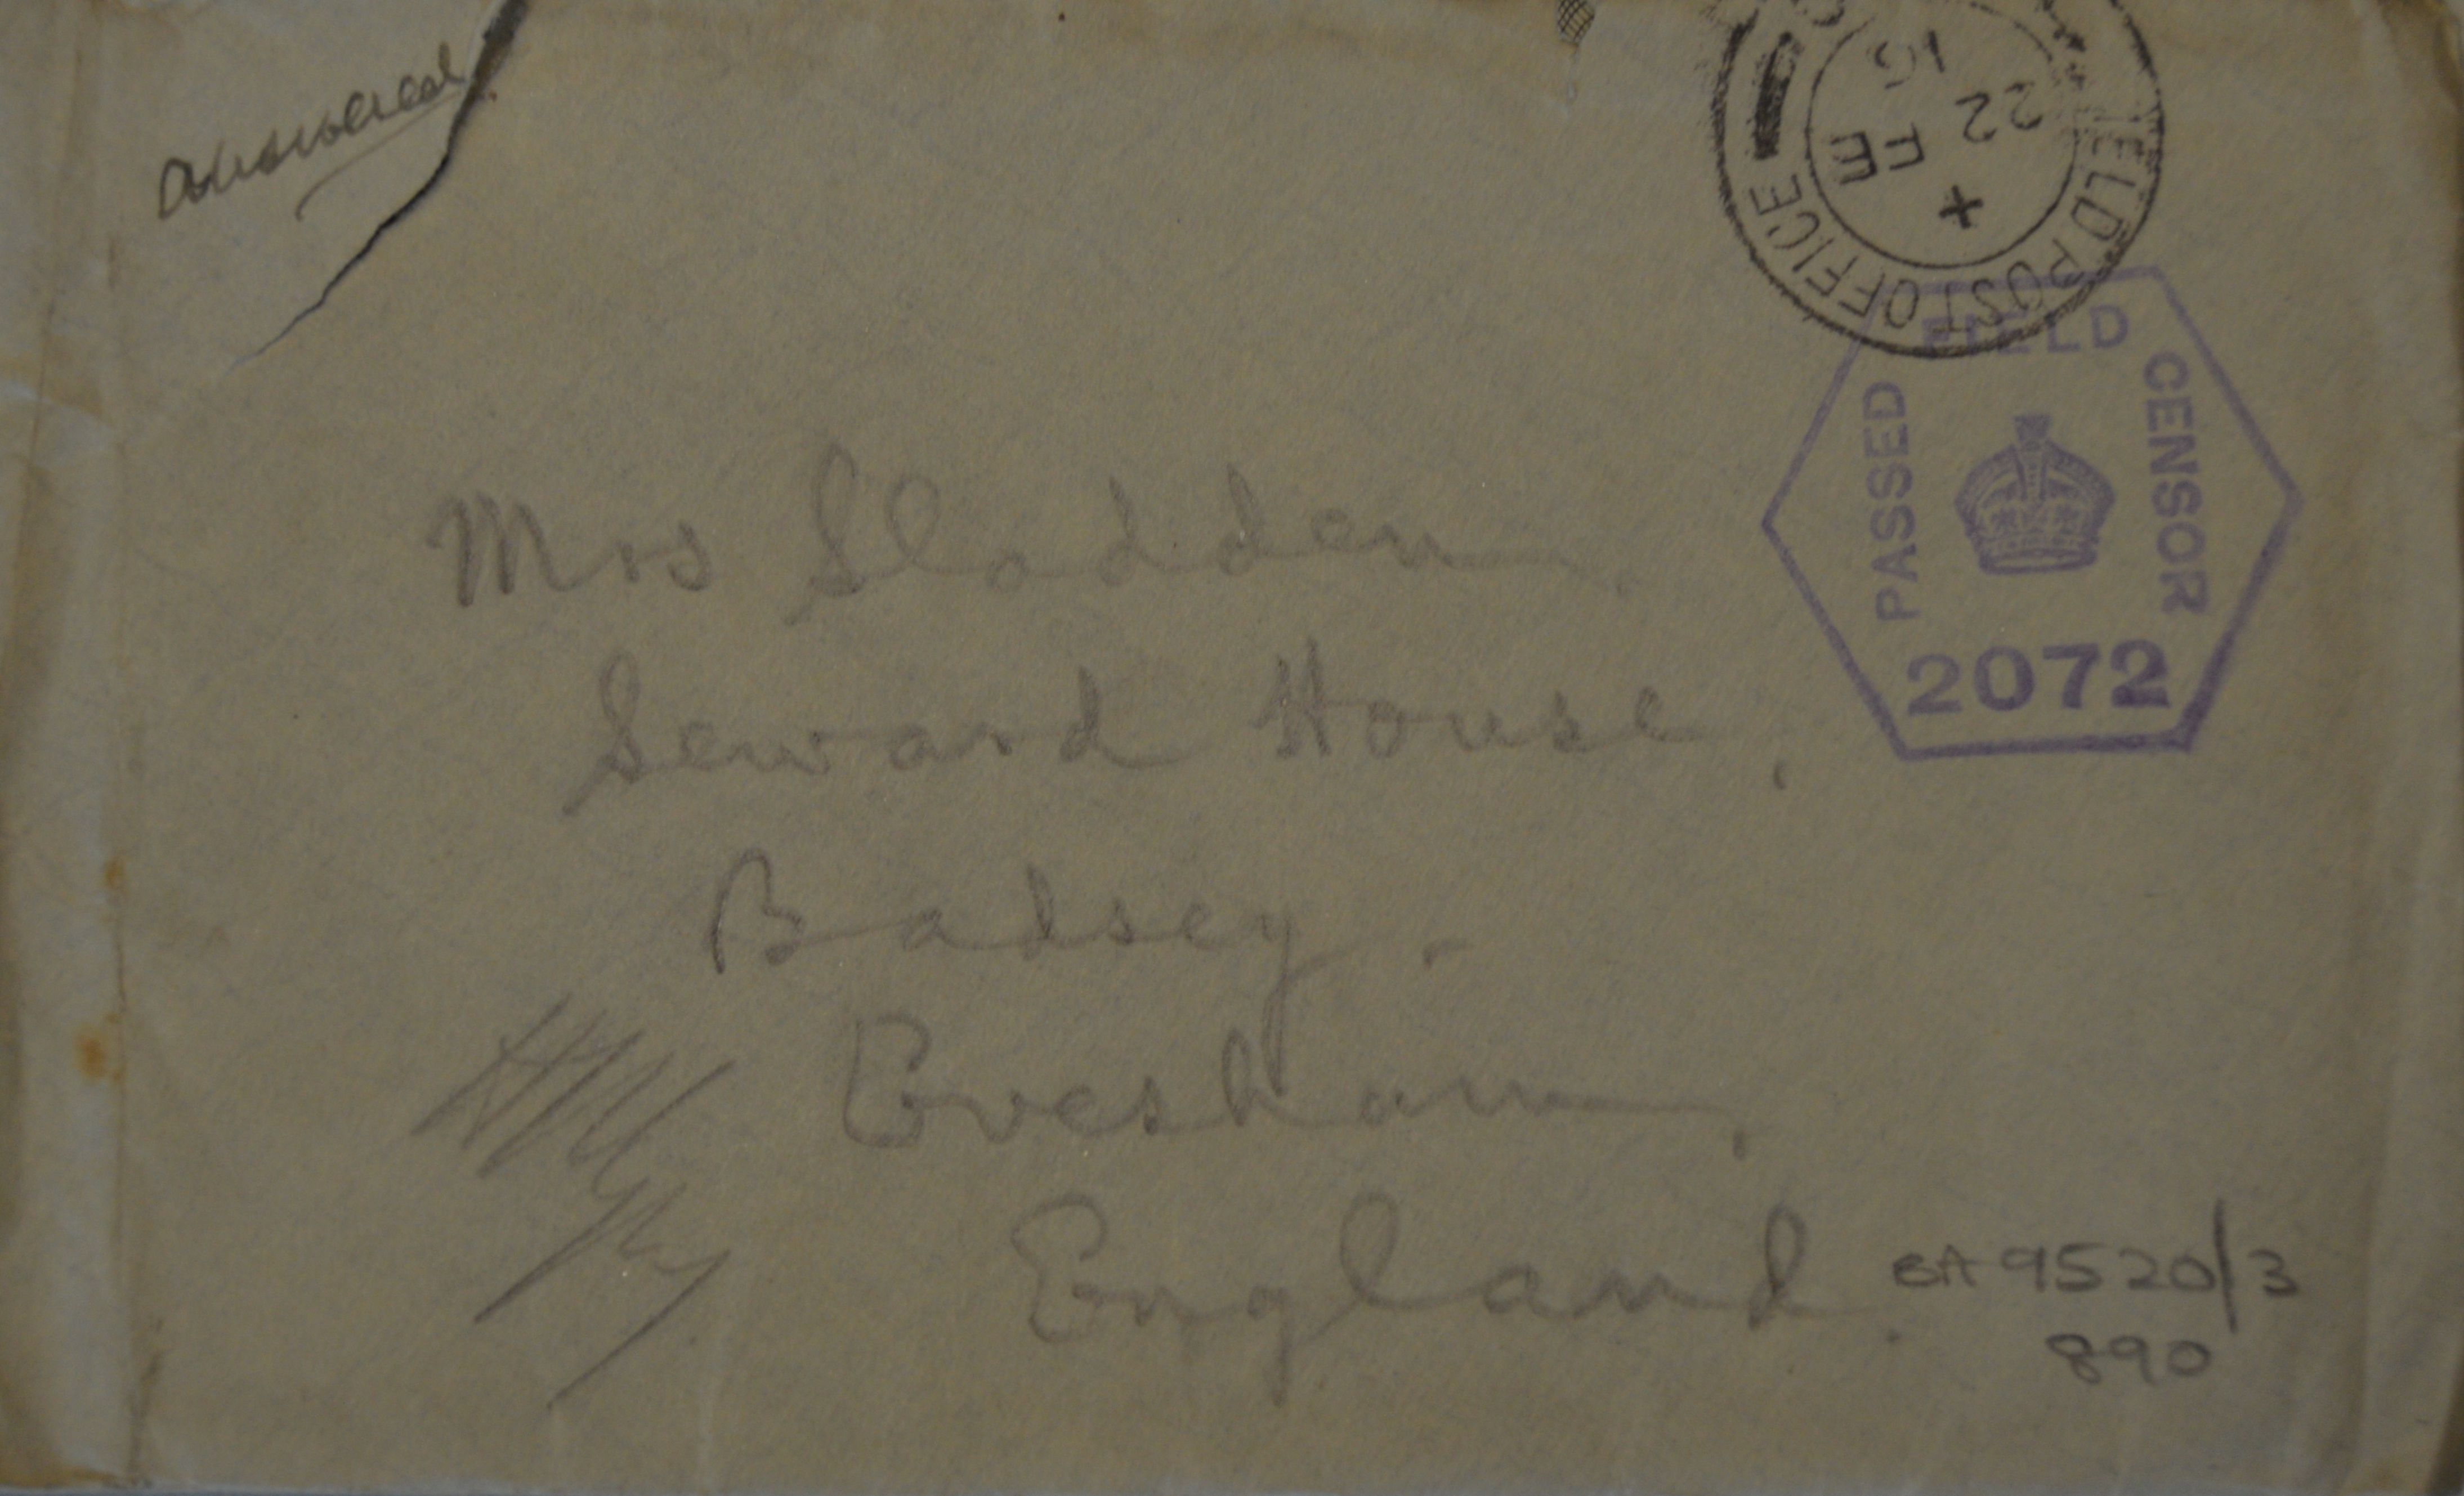 answered
FIELD POST OFFICE
+
FE
22
16
PASSED FIELD CENSOR
2072
Mrs Sladden
Seward House,
Badsey.
Evesham,
England.
BA 9520/3
890